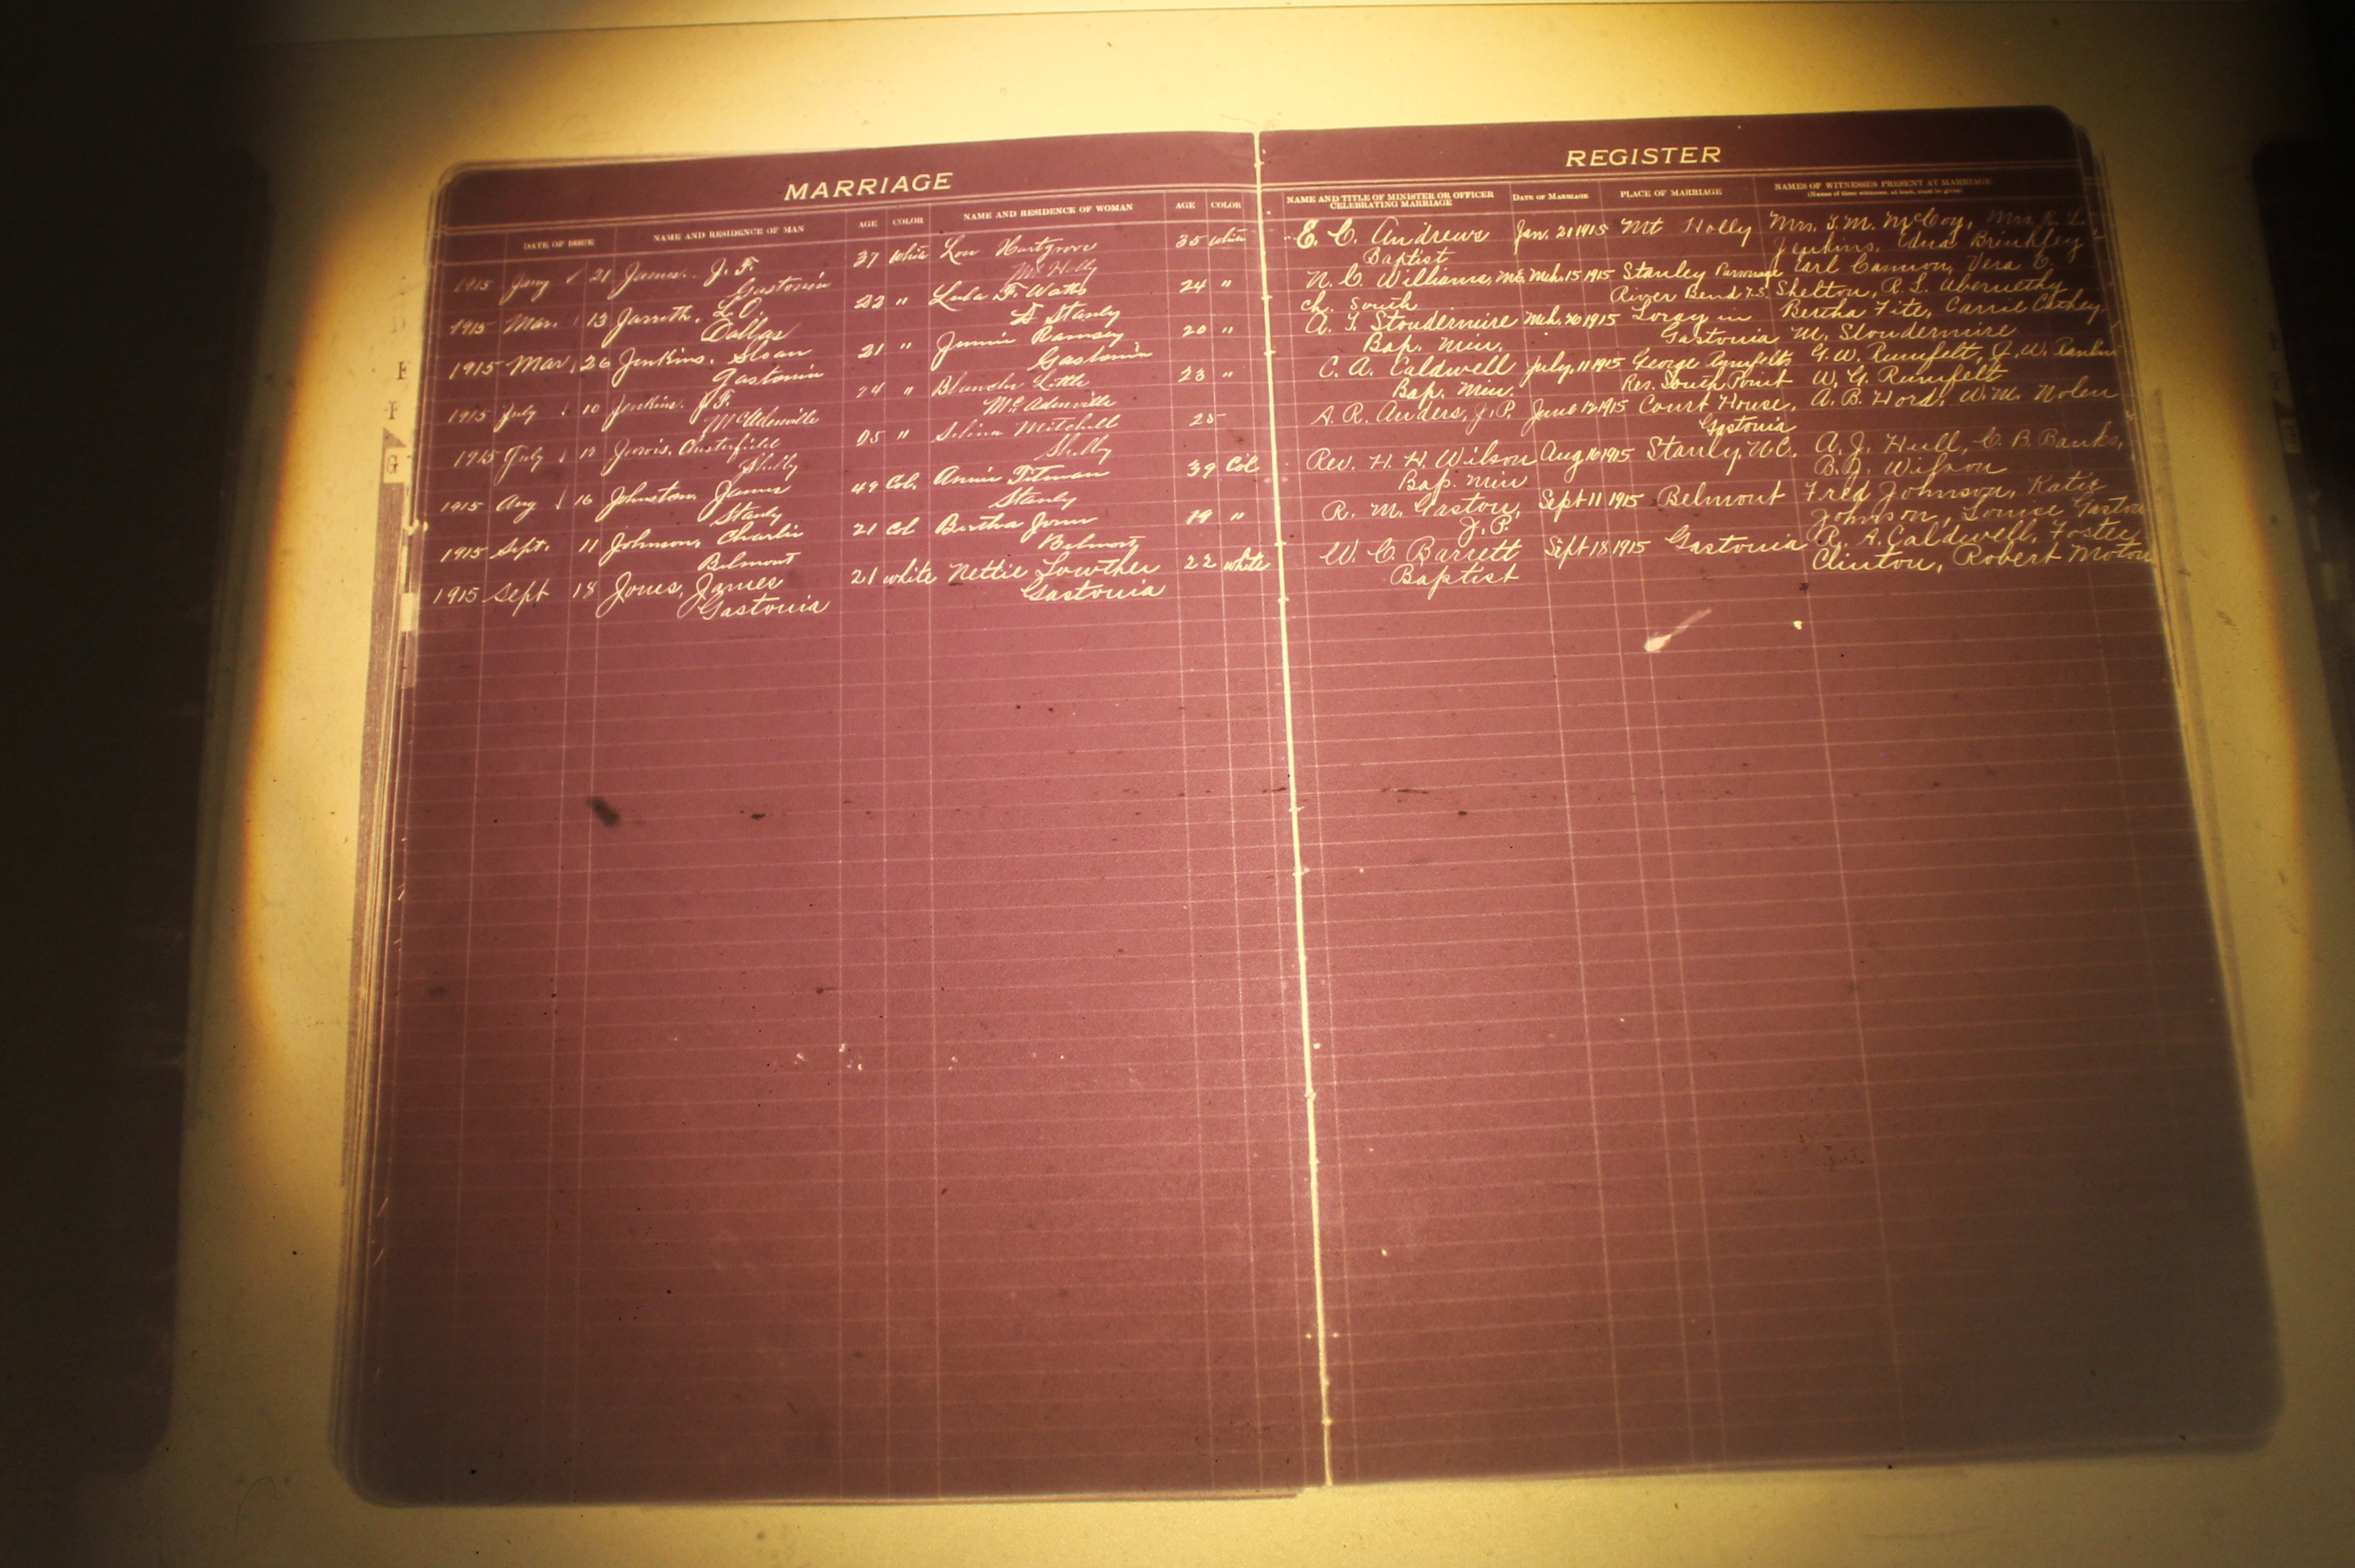 MARRIAGE
DATE OF ISSUE NAME AND RESIDENCE OF MAN AGE COLOR NAME AND RESIDENCE OF WOMAN AGE COLOR
1915 Jany 21 James. J. F. 37 White Lou Hartgrove 35 White
Gastonia Mt Holly
1915 Mar. 13 Jarreth. L. O. 22 " Lula F. Watts 24 "
Dallas Stanly
1915 Mar. 26 Jenkins. Sloan 21 " Jennie Ramsey 20 "
Gastonia Gastonia
1915 July 10 Jenkins. J F. 24 " Blanche Little 23 "
McAdenville McAdenville
1915 July 12 Jarvis. Chesterfield 25 " Selina Mitchell 25
Shelby Shelby
1915 Aug 16 Johnston. James 49 Col. Annie Titman 39 Col
Stanly Stanly
1915 Sept. 11 Johnson, Charlie 21 Col Bertha Jones 19 "
Belmont Belmont
1915 Sept 18 Jones, James 21 white Nettie Lowther 22 white
Gastonia Gastonia
REGISTER
NAME AND TITLE OF MINISTER OR OFFICER CELEBRATING MARRIAGE DATE OF MARRIAGE PLACE OF MARRIAGE NAMES OF WITNESSES PRESENT AT MARRIAGE
(Names of three witnesses, at least, must be given)
E. C. Andrews Jan. 21 1915 Mt Holly Mrs. T. M. McCoy, Mrs. R. L.
Baptist Jenkins, Edna Brinkley
N. C. Williams, M.E. Mch. 15 1915 Stanley Parsonage Earl Cannon, Vera C.
Ch. South River Bend T.S. Shelton, R. L. Abernethy
A. T. Stoudermire Mch. 26 1915 Loray in Bertha Fite, Carrie Cathey,
Bap. Min. Gastonia M. Stoudermire
C. A. Caldwell July, 11 1915 George Rumfelts G. W. Rumfelt, J. W. Rankin
Bap. Min. Res. South Point W. G. Rumfelt
A. R. Anders, J. P. June 12 1915 Court House, A. B. Hord, W. M. Nolen
Gastonia
Rev. H. H. Wilson Aug 16 1915 Stanly, N.C. A. J. Hull, C. B. Banks,
Bap. Min B. J. Wilson
R. M. Gaston, Sept 11 1915 Belmont Fred Johnson, Katie
J. P. Johnson, Louise Gaston
W. C. Barrett Sept 18 1915 Gastonia R. A. Caldwell, Foster
Baptist Clinton, Robert Moton
G